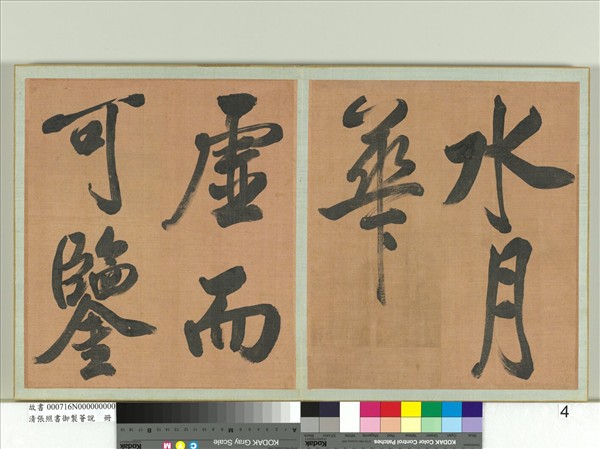 水月
華
虛而
可鑒
故書 000716N000000000
清張照書御製箴說 冊
4
KODAK Gray Scale
C
Y
M
Kodak
KODAK Color Control Patches